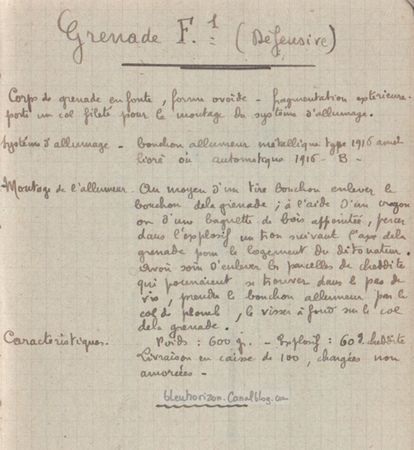 Grenade F.1 (Défensive)
Corps de grenade en fonte, forme ovoïde - fragmentation extérieure -
porte un col fileté pour le montage du système d'allumage.
Système d'allumage - bouchon allumeur métallique type 1916 amé-
lioré ou automatique 1916 - B -
Montage de l'allumeur - Au moyen d'un tire bouchon enlever le
bouchon de la grenade ; à l'aide d'un crayon
ou d'une baguette de bois appointée, percer
dans l'explosif un trou suivant l'axe de la
grenade pour le logement du détonateur.
Avoir soin d'enlever les parcelles de cheddite
qui pourraient se trouver dans le pas de
vis, prendre le bouchon allumeur par le
col de plomb, le visser à fond sur le col
de la grenade.
Caractéristiques. Poids : 600 g. - Explosif : 60 g cheddite
Livraison en caisse de 100, chargées non
amorcées -
bleuhorizon.Canalblog.com